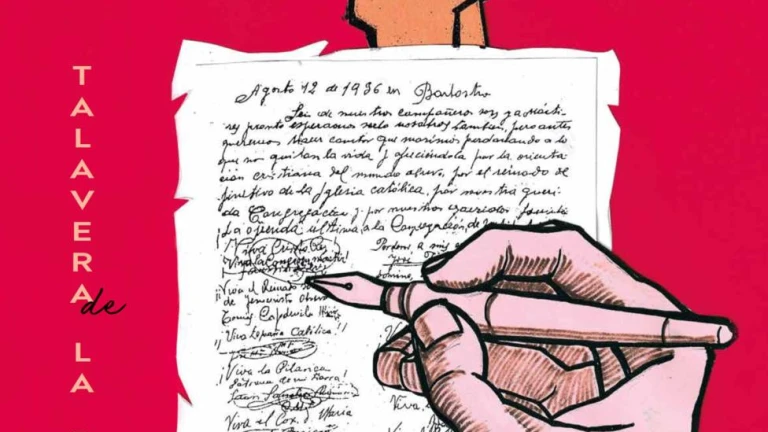 TALAVERA
de
LA
Agosto 12 de 1936 en Barbastro
Seis de nuestros compañeros son ya Márti-
res pronto esperamos serlo nosotros también, pero antes
queremos hacer constar que morimos perdonando a los
que nos quitan la vida y ofreciéndola por la orienta-
ción cristiana del mundo obrero, por el reinado de-
finitivo de la Iglesia católica, por nuestra queri-
da Congregación y por nuestras queridas familia
¡La ofrenda última a la Congregación, de
¡Viva Cristo Rey
Viva la Congregación
¡Viva el Reinado
de Jesucristo Obrero
Tomás Capdevila
¡¡Viva España Católica!!
¡Viva la Pilarica
Patrona de mi tierra!
Viva el Cor. d. Maria
Perdono a mis
Viva,